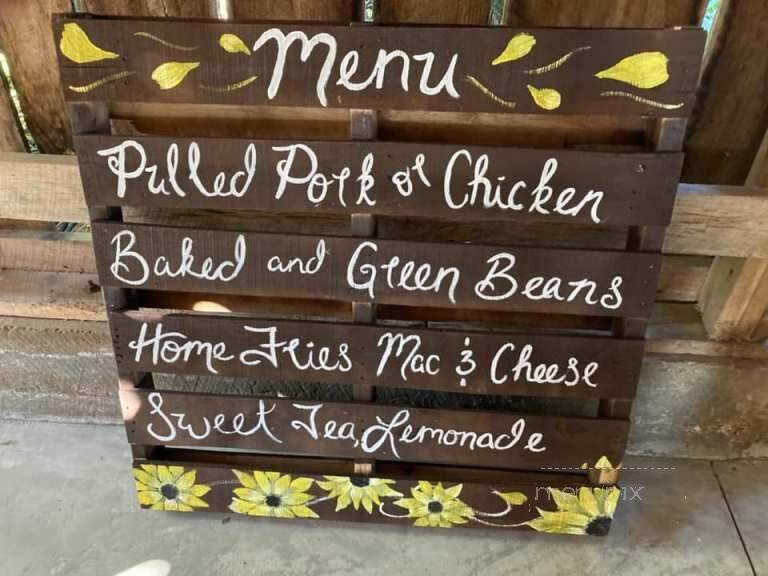 Menu
Pulled Pork or Chicken
Baked and Green Beans
Home Fries Mac & Cheese
Sweet Tea, Lemonade